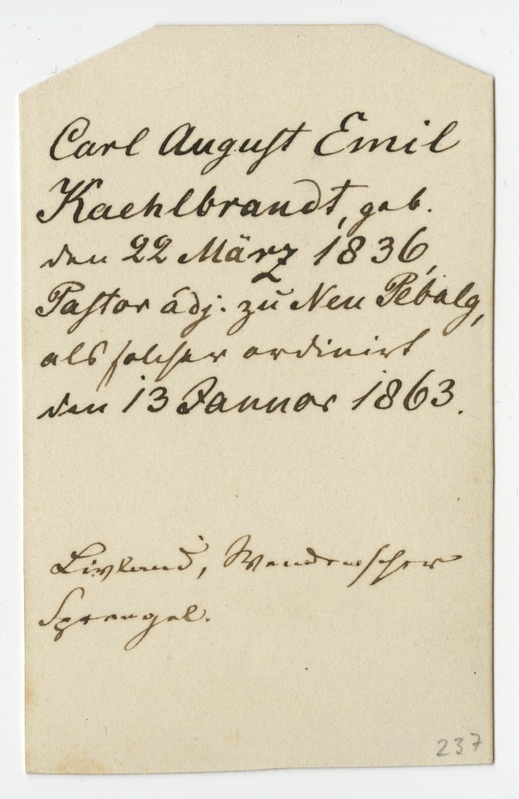 Carl August Emil
Kaehlbrandt, geb.
den 22 März 1836,
Pastor adj. zu Neu Pébalg,
als solcher ordinirt
den 13 Januar 1863.
Livland, Wendenscher
Sprengel.
237